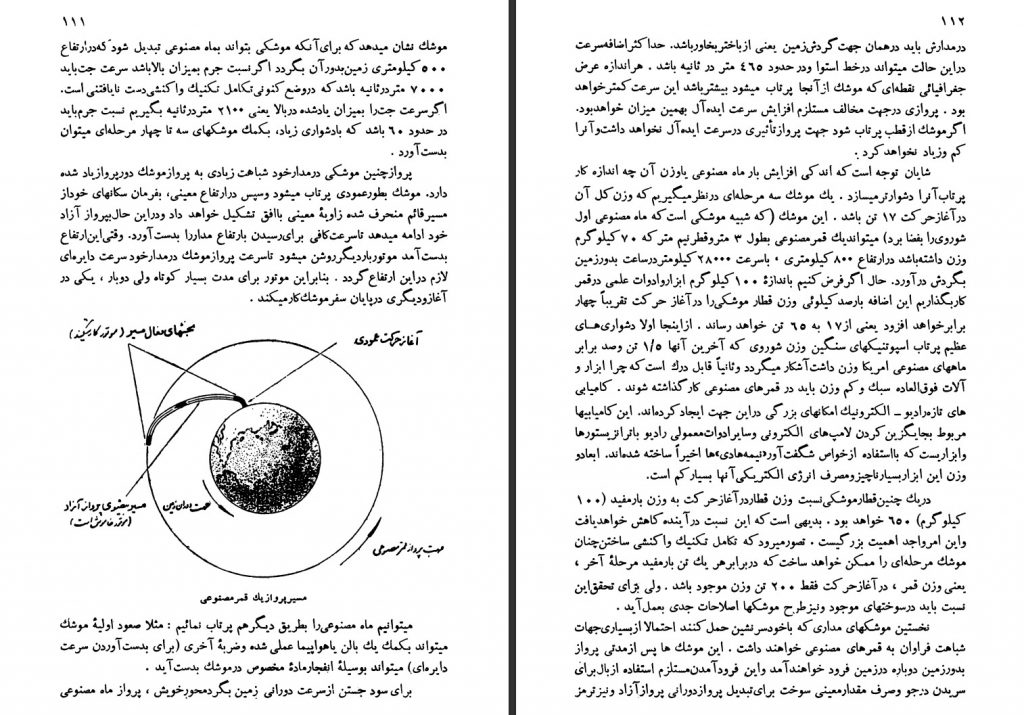 ۱۱۱
موشك نشان میدهد که برای آنکه موشکی بتواند بماه مصنوعی تبدیل شود که در ارتفاع
۵۰۰ کیلومتری زمین بدور آن بگردد اگر نسبت جرم بمیزان بالا باشد سرعت جت باید
۷۰۰۰ متر در ثانیه باشد که در وضع کنونی تکامل تکنیك واکنشی دست نایافتنی است.
اگر سرعت جت را بمیزان یادشده در بالا یعنی ۲۱۰۰ متر در ثانیه بگیریم نسبت جرم باید
در حدود ۶۰ باشد که با دشواری زیاد، بکمك موشکهای سه تا چهار مرحله‌ای میتوان
بدست آورد .
پرواز چنین موشکی در مدار خود شباهت زیادی به پرواز موشك دور پرواز یاد شده
دارد. موشك بطور عمودی پرتاب میشود وسپس در ارتفاع معینی، بفرمان سکانهای خود از
مسیر قائم منحرف شده زاویهٔ معینی با افق تشکیل خواهد داد ودر این حال بپرواز آزاد
خود ادامه میدهد تا سرعت کافی برای رسیدن بارتفاع مدار را بدست آورد. وقتی این ارتفاع
بدست آمد موتور بار دیگر روشن میشود تا سرعت پرواز موشك در مدار خود سرعت دایره‌ای
لازم در این ارتفاع گردد . بنابر این موتور برای مدت بسیار کوتاه ولی دو بار ، یکی در
آغاز و دیگری در پایان سفر موشك کار میکند .
بخشهای فعال مسیر (موتور کار میکند)
آغاز حرکت عمودی
مسیر منحنی پرواز آزاد
(موتور خاموش است)
جهت پرواز قمر مصنوعی
مسیر پرواز یك قمر مصنوعی
میتوانیم ماه مصنوعی را بطریق دیگر هم پرتاب نمائیم : مثلا صعود اولیهٔ موشك
میتواند بکمك یك بالن یا هواپیما عملی شده وضربهٔ آخری (برای بدست آوردن سرعت
دایره‌ای) میتواند بوسیلهٔ انفجار مادهٔ مخصوص در موشك بدست آید .
برای سود جستن از سرعت دورانی زمین بگرد محور خویش ، پرواز ماه مصنوعی
۱۱۲
در مدارش باید در همان جهت گردش زمین یعنی از باختر بخاور باشد. حداکثر اضافه سرعت
در این حالت میتواند در خط استوا ودر حدود ۴۶۵ متر در ثانیه باشد . هر اندازه عرض
جغرافیائی نقطه‌ای که موشك از آنجا پرتاب میشود بیشتر باشد این سرعت کمتر خواهد
بود . پروازی در جهت مخالف مستلزم افزایش سرعت ایده‌آل بهمین میزان خواهد بود.
اگر موشك از قطب پرتاب شود جهت پرواز تأثیری در سرعت ایده‌آل نخواهد داشت وآنرا
کم وزیاد نخواهد کرد .
شایان توجه است که اندکی افزایش بار ماه مصنوعی یا وزن آن چه اندازه کار
پرتاب آنرا دشوارتر میسازد . یك موشك سه مرحله‌ای در نظر میگیریم که وزن کل آن
در آغاز حرکت ۱۷ تن باشد . این موشك (که شبیه موشکی است که ماه مصنوعی اول
شوروی را بفضا برد) میتواند یك قمر مصنوعی بطول ۳ متر و قطر نیم متر که ۷۰ کیلو گرم
وزن داشته باشد در ارتفاع ۸۰۰ کیلومتری ، با سرعت ۲۸۰۰۰ کیلومتر در ساعت بدور زمین
بگردش در آورد. حال اگر فرض کنیم باندازهٔ ۱۰۰ کیلو گرم ابزار وادوات علمی در قمر
کار بگذاریم این اضافه بار صد کیلوئی وزن قطار موشکی را در آغاز حرکت تقریباً چهار
برابر خواهد افزود یعنی از ۱۷ به ۶۵ تن خواهد رساند . از اینجا اولا دشواری‌های
عظیم پرتاب اسپوتنیکهای سنگین وزن شوروی که آخرین آنها ۱/۵ تن وصد برابر
ماههای مصنوعی امریکا وزن داشت آشکار میگردد وثانیاً قابل درك است که چرا ابزار و
آلات فوق‌العاده سبك و کم وزن باید در قمرهای مصنوعی کار گذاشته شوند . کامیابی
های تازه رادیو ــ الکترونیك امکانهای بزرگی در این جهت ایجاد کرده‌اند. این کامیابیها
مربوط بجایگزین کردن لامپ‌های الکترونی وسایر ادوات معمولی رادیو با ترانزیستورها
وابزاریست که با استفاده از خواص شگفت‌آور «نیمه‌هادی»ها اخیراً ساخته شده‌اند. ابعاد و
وزن این ابزار بسیار ناچیز ومصرف انرژی الکتریکی آنها بسیار کم است.
در یك چنین قطار موشکی نسبت وزن قطار در آغاز حرکت به وزن بار مفید (۱۰۰
کیلو گرم) ۶۵۰ خواهد بود . بدیهی است که این نسبت در آینده کاهش خواهد یافت
واین امر واجد اهمیت بزرگیست . تصور میرود که تکامل تکنیك واکنشی ساختن چنان
موشك مرحله‌ای را ممکن خواهد ساخت که در برابر هر یك تن بار مفید مرحلهٔ آخر ،
یعنی وزن قمر ، در آغاز حرکت فقط ۲۰۰ تن وزن موجود باشد . ولی برای تحقق این
نسبت باید در سوختهای موجود ونیز طرح موشکها اصلاحات جدی بعمل آید .
نخستین موشکهای مداری که با خود سرنشین حمل کنند احتمالا از بسیاری جهات
شباهت فراوان به قمرهای مصنوعی خواهند داشت . این موشك ها پس از مدتی پرواز
بدور زمین دوباره در زمین فرود خواهند آمد واین فرود آمدن مستلزم استفاده از بال برای
سریدن در جو وصرف مقدار معینی سوخت برای تبدیل پرواز دورانی پرواز آزاد ونیز ترمز